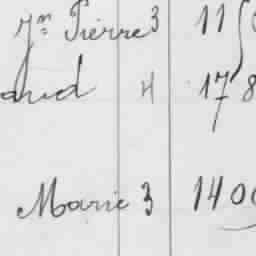 Jn Pierre 3 11
aud 4 178
Marie 3 140